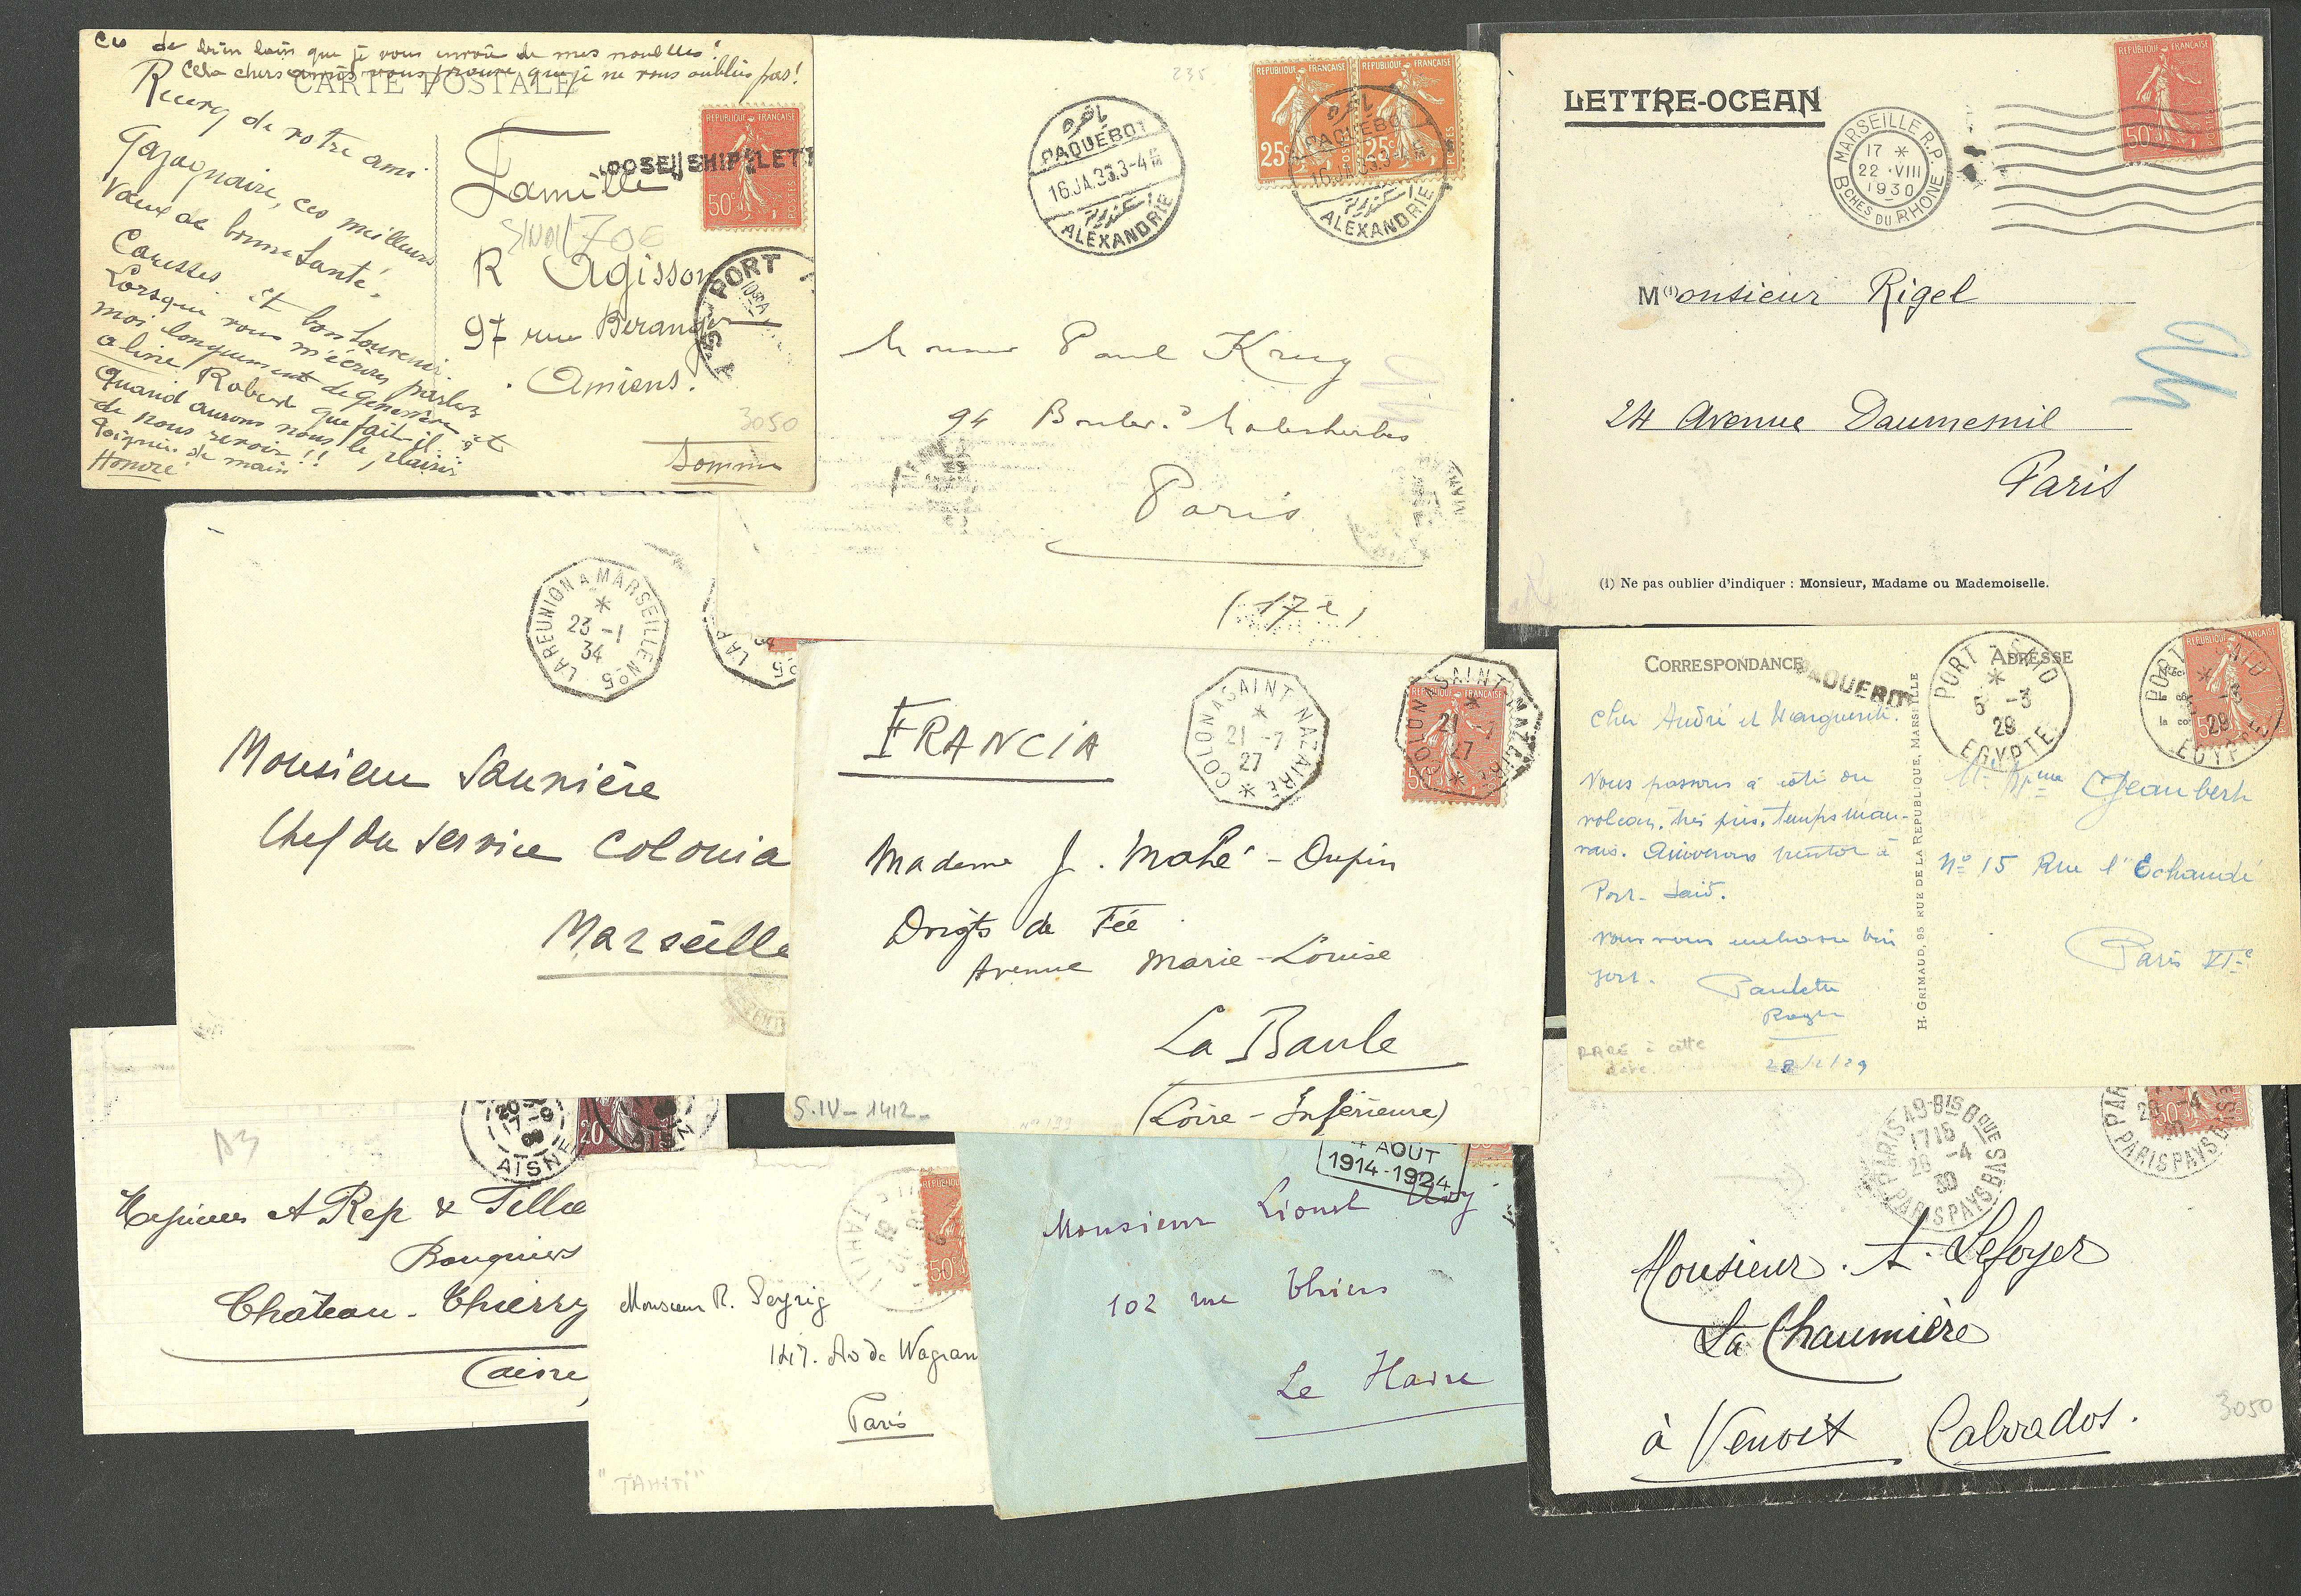 Ces de bien loin que je vous envoie de mes nouvelles!
Cela chers amis vous prouve que je ne vous oublies pas!
CARTE POSTALE
Recevez de votre ami
Gazagnaire, ces meilleurs
Vœux de bonne Santé,
Caresses et bon Souvenir.
Lorsque vous m'écrirez parlez
moi longuement de Geneviève et
aline, Robert que fait-il?
Quand aurons nous le plaisir
de nous revoir!!
Poignée de main
Honoré
REPUBLIQUE FRANCAISE
50c
POSTES
LOOSE SHIP LETT
Famille
R Agisson
97 rue Beranger
Amiens.
Somme
PORT
3050
235
PAQUEBOT
16.JA.33.3-4
ALEXANDRIE
REPUBLIQUE FRANCAISE
25c
REPUBLIQUE FRANCAISE
25c
PAQUEBOT
16.JA.33.3-4
ALEXANDRIE
Paul Krug
94 Boulevd Malesherbes
Paris
(17e)
LETTRE-OCEAN
MARSEILLE R.P.
17 *
22 ·VIII
1930
BCHES DU RHONE
REPUBLIQUE FRANCAISE
50c
POSTES
M(1)onsieur Rigel
24 Avenue Daumesnil
Paris
(1) Ne pas oublier d'indiquer : Monsieur, Madame ou Mademoiselle.
LA REUNION A MARSEILLE No5
*
23 -1
34
LA R
No5
Monsieur Saunière
Chef du Service Colonia
Marseille
FRANCIA
COLON A SAINT NAZAIRE
*
21 -7
27
*
REPUBLIQUE FRANCAISE
50c
COLON A SAINT NAZAIRE
*
21 -7
27
*
Madame J. Mahé - Dupin
Doigts de Fée
Avenue Marie-Louise
La Baule
(Loire - Inférieure)
S.IV - 1412 -
CORRESPONDANCE
PAQUEBOT
ADRESSE
PORT-SAID
*
5 -3
29
EGYPTE
REPUBLIQUE FRANCAISE
PORT SAID
EGYPTE
Cher André et Marguerite.
Nous passons à côté du
volcan, très près, temps mau-
vais. Arriverons bientôt à
Port-Saïd.
vous embrasse bien
fort.
Paulette
Roger
RARE à cette
date
H. GRIMAUD, 95 RUE DE LA REPUBLIQUE, MARSEILLE
Jeaubert
No 15 Rue l'Echaudé
Paris VIe
20
7-9
AISNE
20
AISN
A3
Messieurs A Rep & Fillie
Banquiers
Château-Thierry
(aisne
TAHITI
REPUBLIQUE
50c
Monsieur R. Seyrig
147. Av de Wagram
Paris
"TAHITI"
4 AOUT
1914-1924
Monsieur Lionel
102 rue Thiers
Le Havre
PARIS 49-BIS Bque BASQUE
1715
28 -4
30
PARIS PAYS BASQUE
PAR
28 -4
30
PARIS PAYS BASQUE
Monsieur. A. Lefoyer
La Chaumière
à Venoix Calvados.
3050